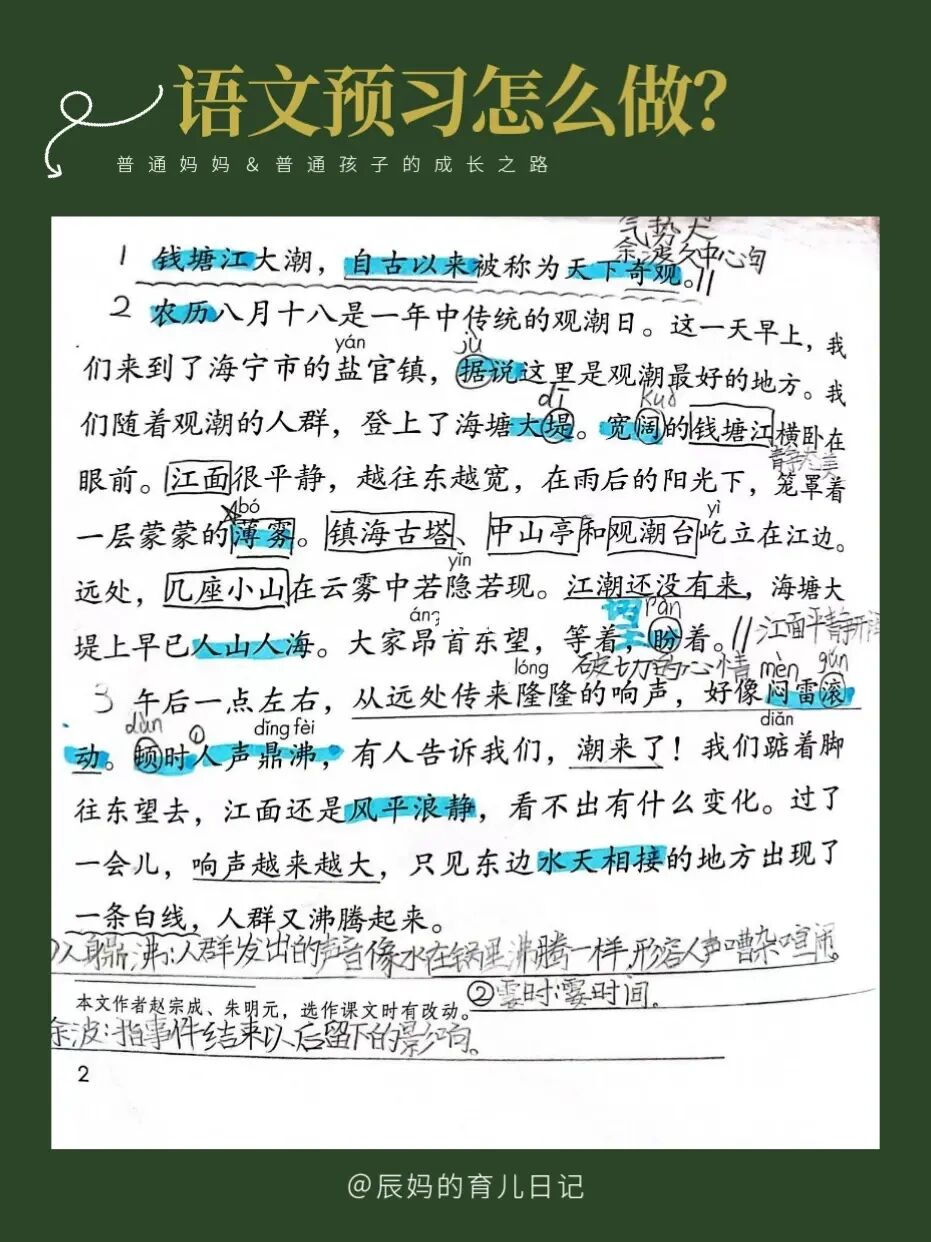 语文预习怎么做?
普通妈妈&普通孩子的成长之路
气势
余波久中心句
1 钱塘江大潮，自古以来被称为天下奇观。
2 农历八月十八是一年中传统的观潮日。这一天早上，我
yán jù
们来到了海宁市的盐官镇，据说这里是观潮最好的地方。我
dī kuò
们随着观潮的人群，登上了海塘大堤。宽阔的钱塘江横卧在
眼前。江面很平静，越往东越宽，在雨后的阳光下，笼罩着
bó yì
一层蒙蒙的薄雾。镇海古塔、中山亭和观潮台屹立在江边。
yǐn
远处，几座小山在云雾中若隐若现。江潮还没有来，海塘大
áng pàn
堤上早已人山人海。大家昂首东望，等着，盼着。
江面平静
lóng 的心情 mèn gǔn
3 午后一点左右，从远处传来隆隆的响声，好像闷雷滚
dùn ① dǐng fèi diǎn
动。顿时人声鼎沸，有人告诉我们，潮来了！我们踮着脚
往东望去，江面还是风平浪静，看不出有什么变化。过了
一会儿，响声越来越大，只见东边水天相接的地方出现了
一条白线，人群又沸腾起来。
人声鼎沸:人群发出的声音像水在锅里沸腾一样.形容人声嘈杂喧闹。
②霎时:霎时间.
本文作者赵宗成、朱明元，选作课文时有改动。
余波:指事件结束以后留下的影响。
2
@辰妈的育儿日记